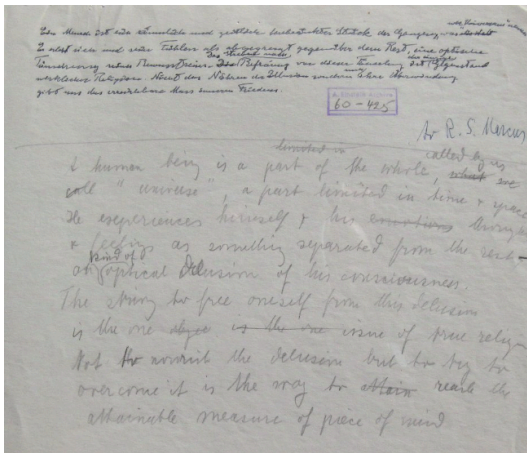 Ein Mensch ist ein räumlich und zeitlich beschränktes Stück des Ganzen,
sich und sein Fühlen als abgetrennt gegenüber dem Rest, eine optische
Täuschung seines Bewusstseins. Das Streben nach Befreiung von dieser Täuschung ist der einzige Gegenstand
wirklicher Religion. Nicht das Nähren der Illusion sondern nur ihre Überwindung
gibt uns das erreichbare Mass inneren Friedens.
60-425
to R. S. Marcus
limited in called by us
A human being is a part of the whole, what we
call "universe", a part limited in time & space
He experiences himself & his emotions thoughts
& feelings as something separated from the rest -
kind of
an optical delusion of his consciousness.
The striving to free oneself from this delusion
is the one object is the one issue of true relig
Not to nourish the delusion but to try to
overcome it is the way to attain reach the
attainable measure of peace of mind